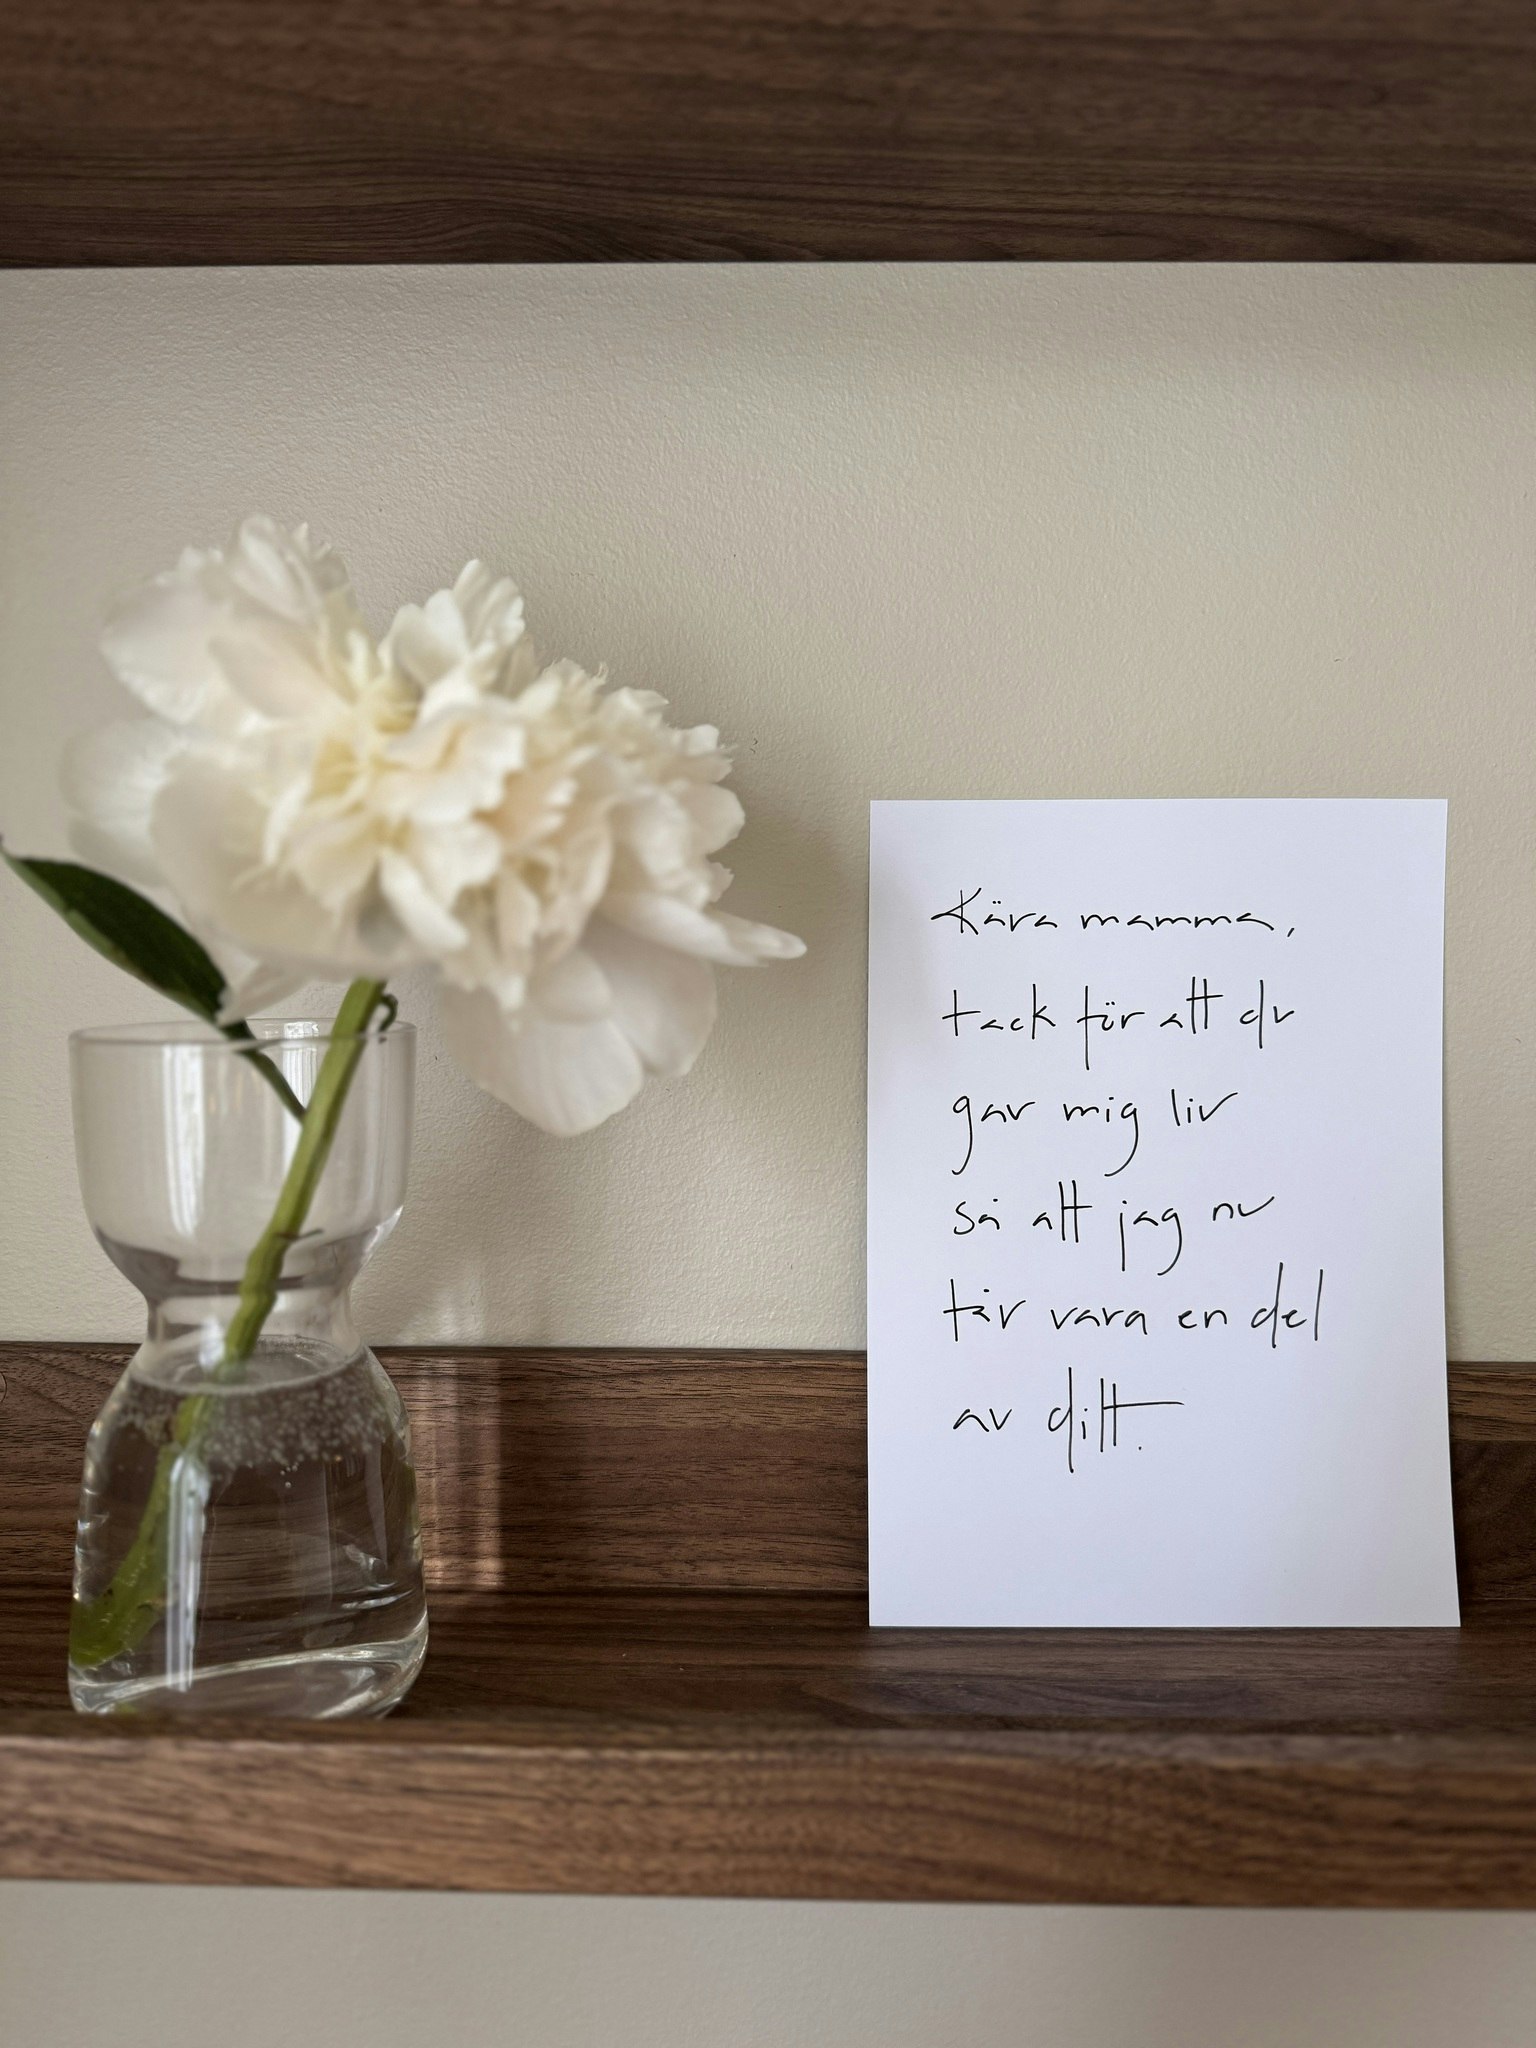 Kära mamma,
tack för att du
gav mig liv
så att jag nu
får vara en del
av ditt.